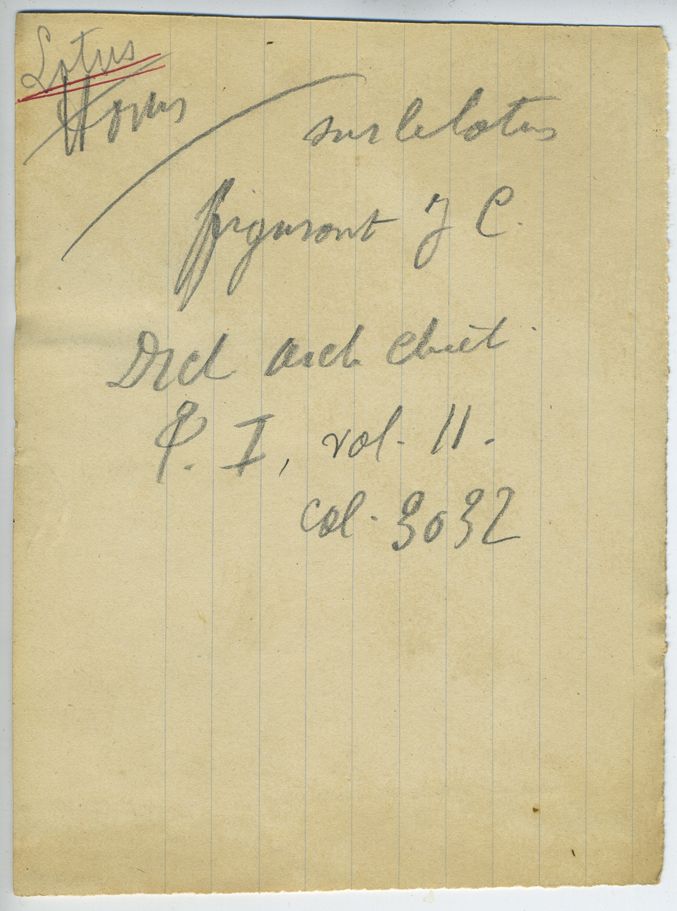 Lotus
Horus
sur le lotus
figurant J C.
Dict arch chrét.
P. I, vol. II.
col. 3032